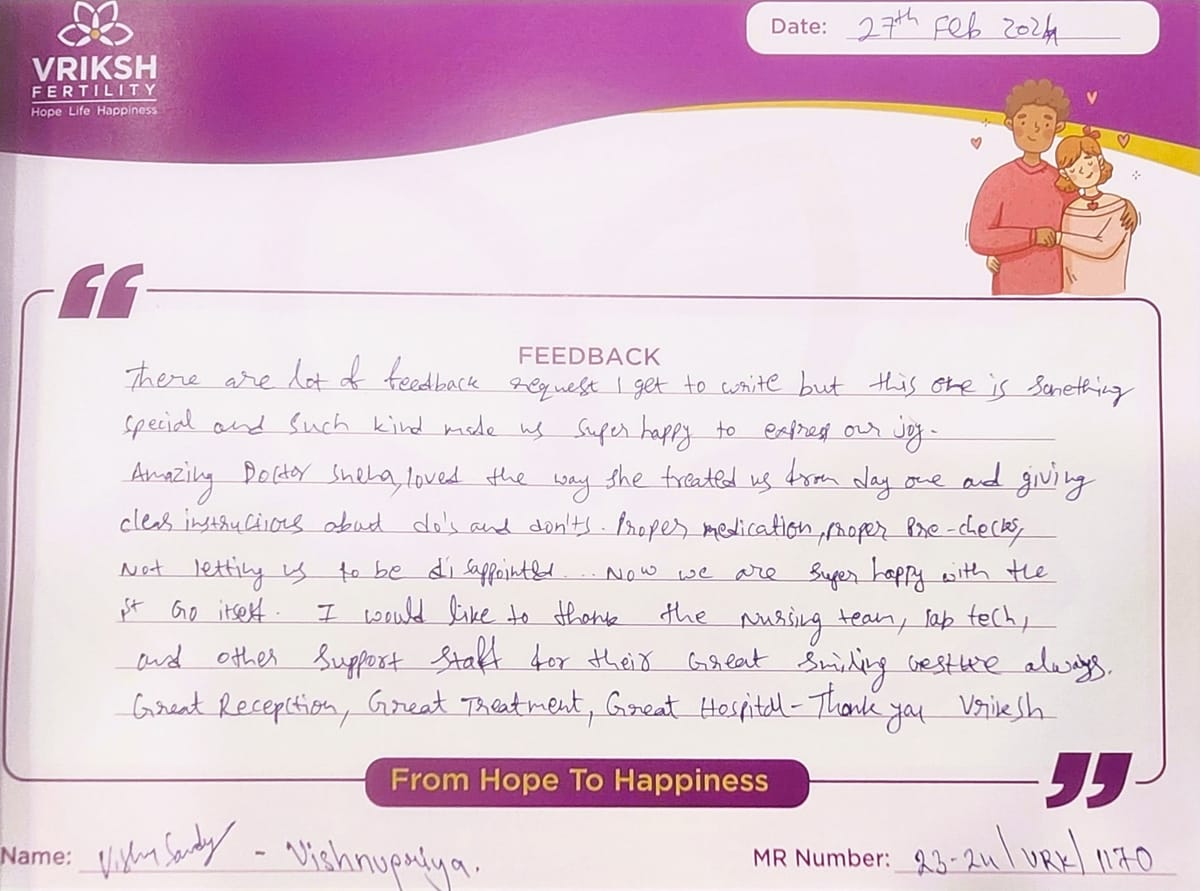 VRIKSH
FERTILITY
Hope Life Happiness
Date: 27th Feb 2024
FEEDBACK
There are lot of feedback request I get to write but this one is something
special and such kind made us super happy to express our joy.
Amazing Doctor Sneha, loved the way she treated us from day one and giving
clear instructions about do's and don'ts. Proper medication, proper Pre-checks,
Not letting us to be disappointed... Now we are super happy with the
1st Go itself. I would like to thank the Nursing team, lab tech,
and other support staff for their Great smiling gesture always.
Great Reception, Great Treatment, Great Hospital - Thank you Vriksh
From Hope To Happiness
Name: Vishnu Sandy - Vishnupriya.
MR Number: 23-24/VRK/1170